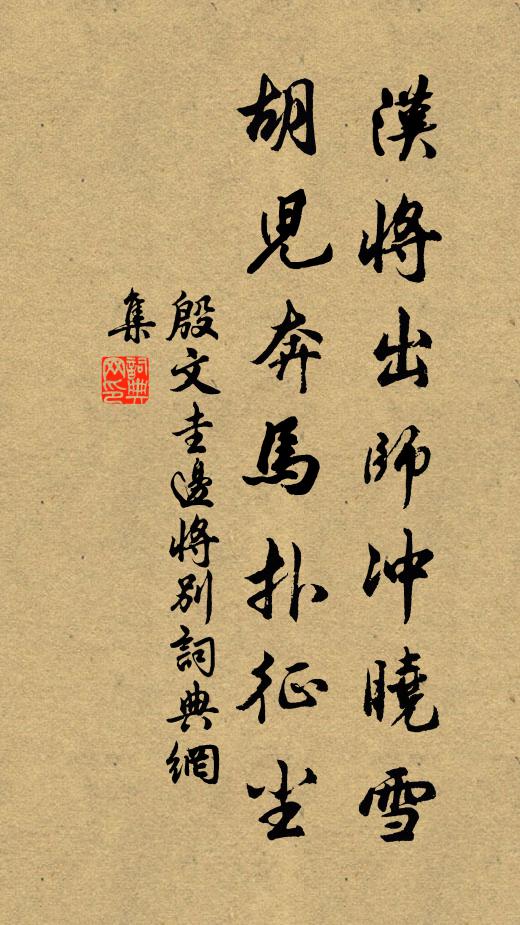 漢將出師冲曉雪
胡兒奔馬扑征尘
殷文圭邊將別詞典網
集
詞典
网印